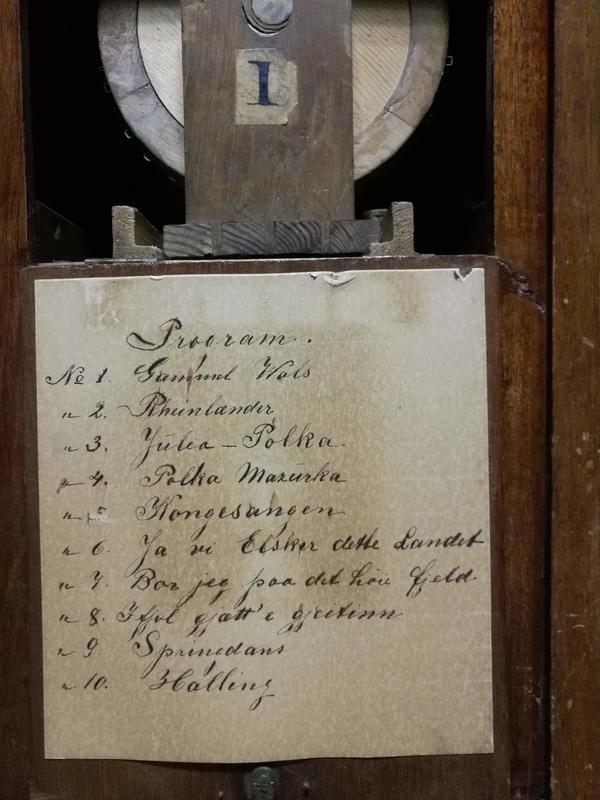 1
Program.
No 1. Gammel Vals
" 2. Rheinlænder
" 3. Julia - Polka.
" 4. Polka Mazurka
" 5 Kongesangen
" 6. Ja vi Elsker dette Landet
" 7. Bor jeg paa det høie fjeld
" 8. Ifjol gjætt'e gjeitinn
" 9. Springdans
" 10. Halling